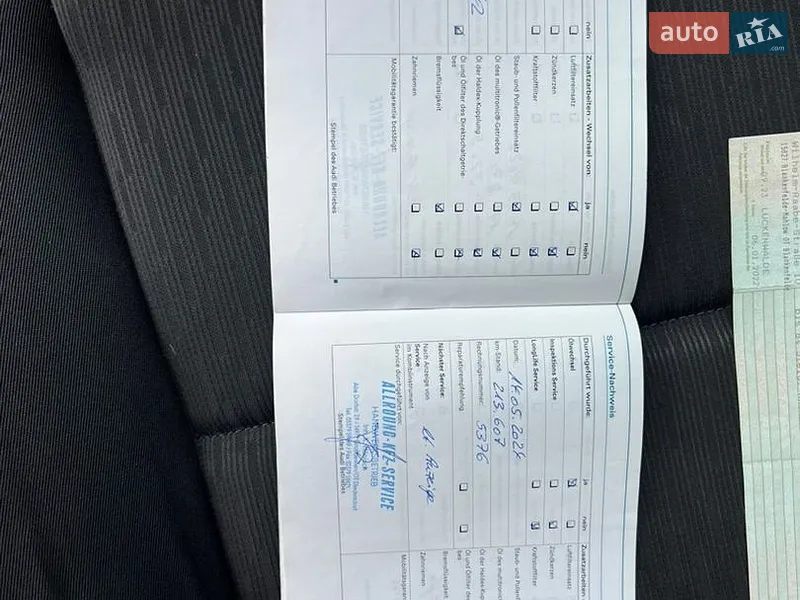 auto RIA .com
nein
Zusatzarbeiten - Wechsel von: ja nein
Luftfiltereinsatz
Zündkerzen
Kraftstofffilter
Staub- und Pollenfiltereinsatz
Öl des multitronic®-Getriebes
Öl der Haldex-Kupplung
Öl und Ölfilter des Direktschaltgetrie-
bes
Bremsflüssigkeit
Zahnriemen
Mobilitätsgarantie bestätigt:
Stempel des Audi Betriebes
Service-Nachweis
Durchgeführt wurde: ja nein
Ölwechsel
Inspektions Service
LongLife Service
Datum: 14.05.2024
km-Stand: 213.607
Rechnungsnummer: 5376
Reparaturempfehlung
Nächster Service:
Nach Anzeige von
Service
im Kombiinstrument
lt. Anzeige
Service durchgeführt von:
ALLROUND-KFZ-SERVICE
Stempel des Audi Betriebes
Zusatzarbeiten -
Luftfiltereinsatz
Zündkerzen
Kraftstofffilter
Staub- und Pollenf
Öl des multitroni
Öl der Haldex-Kupp
Öl und Ölfilter de
bes
Bremsflüssigkeit
Zahnriemen
Mobilitätsgaran
Wilhelm-Raabe-Straße
15827 Blankenfelde-Mahlow OT Blankenfelde
LUCKENWALDE
06.01.2022